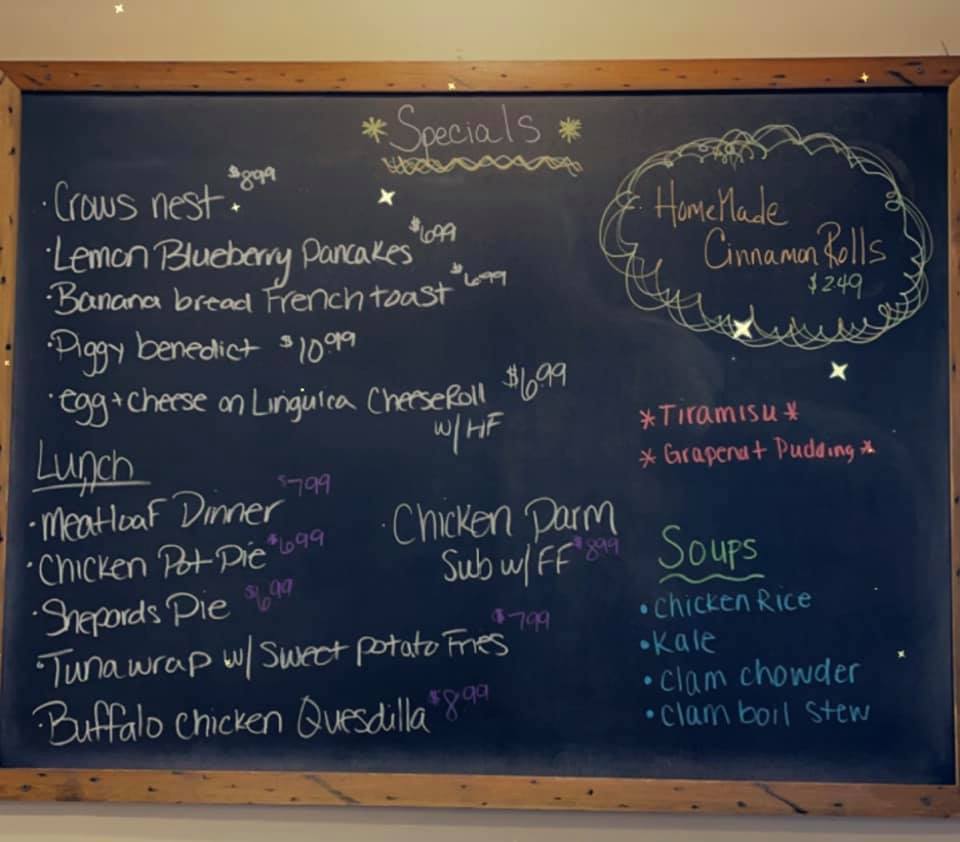 * Specials *
· Crows nest $8.99
· Lemon Blueberry Pancakes $6.99
· Banana bread French toast $6.99
· Piggy benedict $10.99
· egg + cheese on Linguica CheeseRoll $6.99
w/ HF
Lunch
· Meatloaf Dinner $7.99
· Chicken Pot Pie $6.99
· Shepords Pie $6.99
· Tuna wrap w/ Sweet potato Fries $7.99
· Buffalo chicken Quesdilla $8.99
· Chicken Parm
Sub w/ FF $8.99
HomeMade
Cinnamon Rolls
$2.49
* Tiramisu *
* Grapenut Pudding *
Soups
• Chicken Rice
• Kale
• Clam chowder
• Clam boil stew